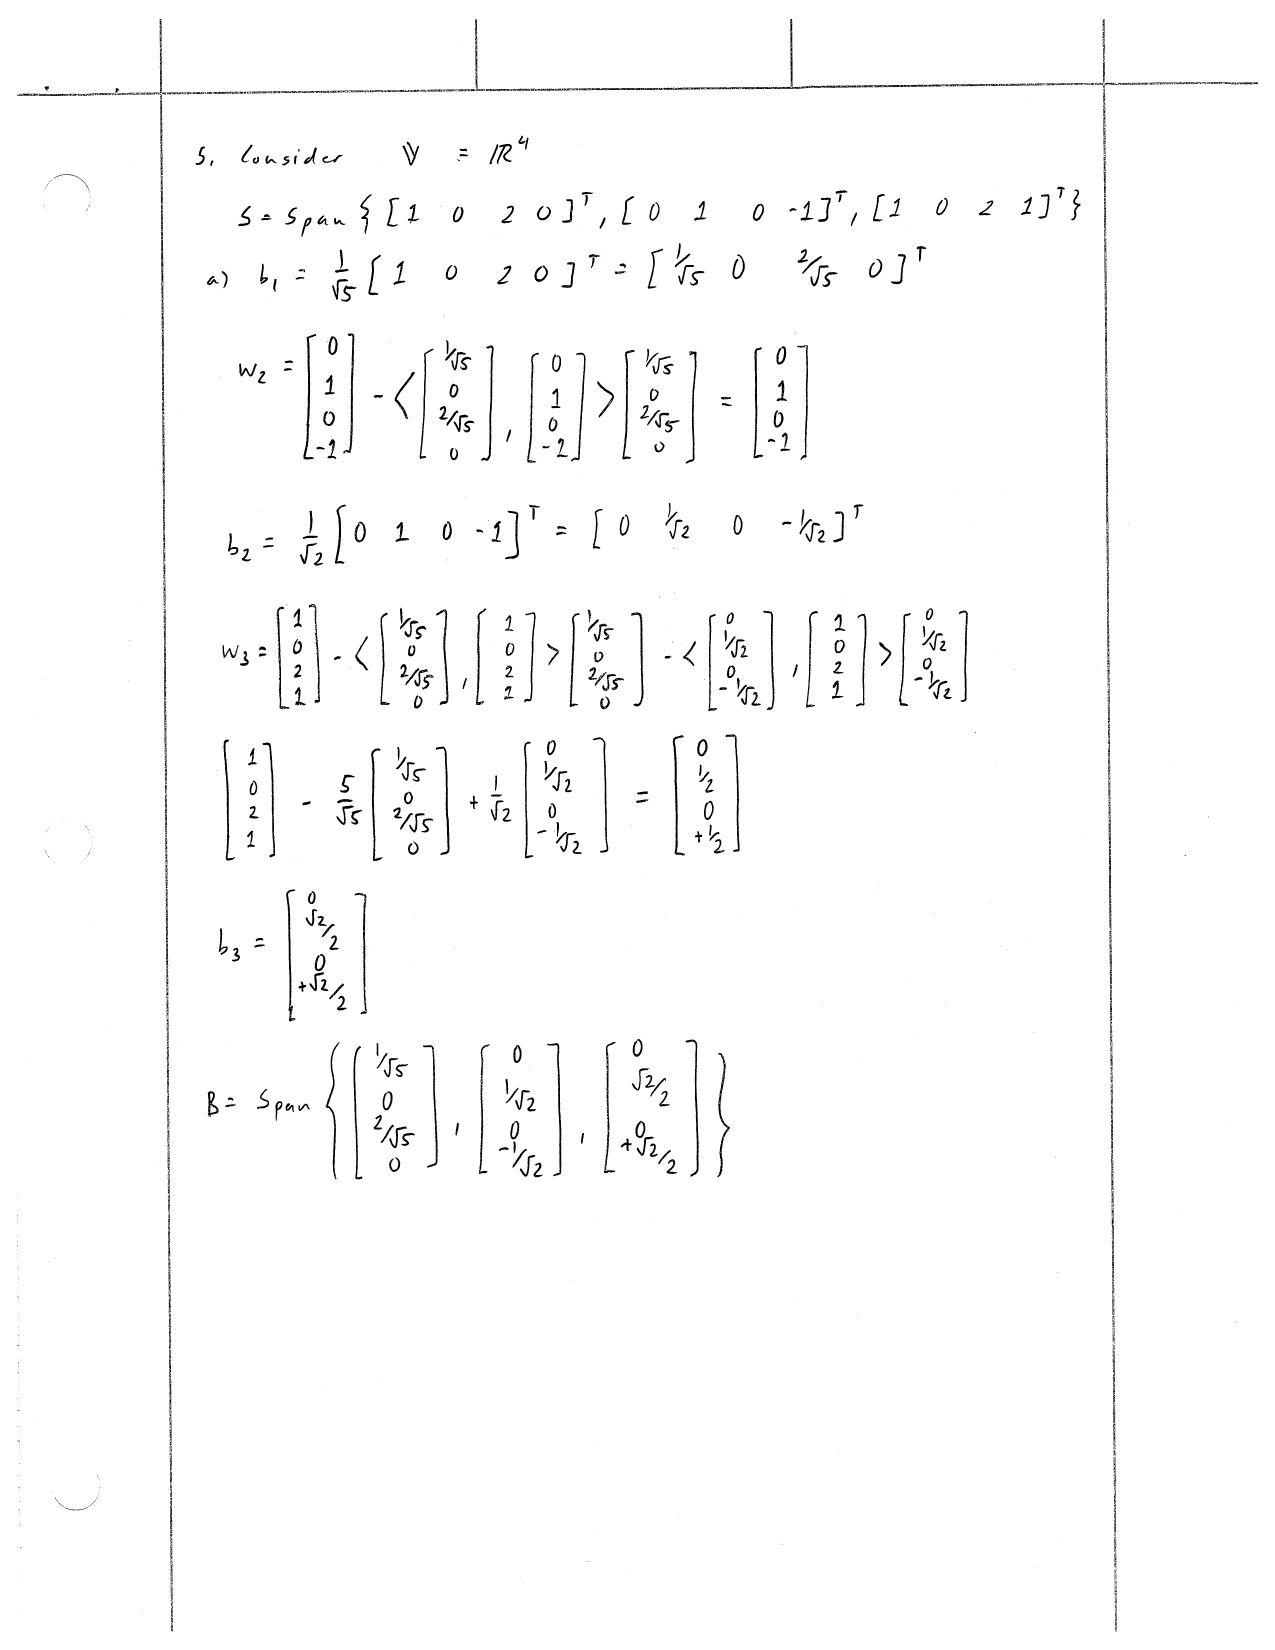 5. Consider 𝕍 = ℝ⁴
S = Span { [1 0 2 0]ᵀ, [0 1 0 -1]ᵀ, [1 0 2 1]ᵀ }
a) b₁ = 1/√5 [1 0 2 0]ᵀ = [1/√5 0 2/√5 0]ᵀ
w₂ = [0 1 0 -1] - < [1/√5 0 2/√5 0], [0 1 0 -1] > [1/√5 0 2/√5 0] = [0 1 0 -1]
b₂ = 1/√2 [0 1 0 -1]ᵀ = [0 1/√2 0 -1/√2]ᵀ
w₃ = [1 0 2 1] - < [1/√5 0 2/√5 0], [1 0 2 1] > [1/√5 0 2/√5 0] - < [0 1/√2 0 -1/√2], [1 0 2 1] > [0 1/√2 0 -1/√2]
[1 0 2 1] - 5/√5 [1/√5 0 2/√5 0] + 1/√2 [0 1/√2 0 -1/√2] = [0 1/2 0 +1/2]
b₃ = [0 √2/2 0 +√2/2]
B = Span { [1/√5 0 2/√5 0], [0 1/√2 0 -1/√2], [0 √2/2 0 +√2/2] }